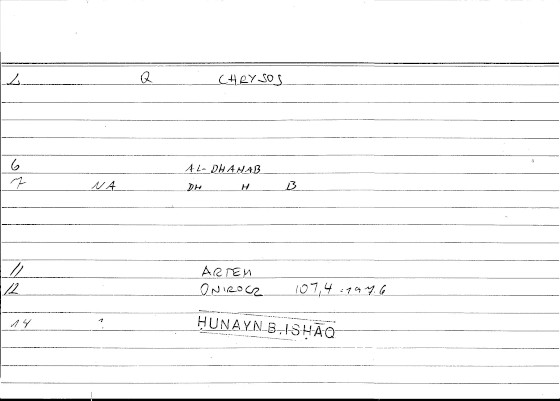 1 Q CHRYSOS
6 AL-DHAHAB
7 NA DH H B
11 ARTEM
12 ONIROCR 107,4
14 HUNAYN B. ISHĀQ